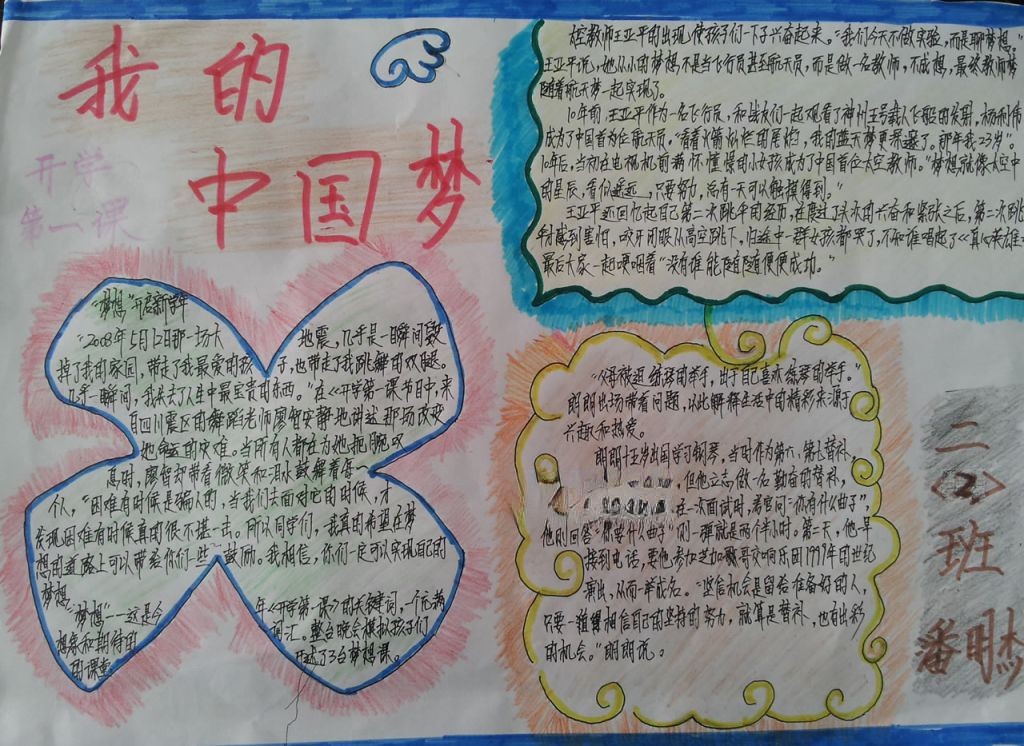 我的
中国梦
开学
第一课
"梦想"开启新学年
"2008年5月12日那一场大地震,几乎是一瞬间毁
掉了我的家园,带走了我最爱的孩子,也带走了我跳舞的双腿。
几乎一瞬间,我失去了人生中最宝贵的东西。"在《开学第一课》节目中,来
自四川震区的舞蹈老师廖智安静地讲述那场改变
她命运的灾难。当所有人都在为她把眼
息时,廖智却带着微笑和泪水鼓舞着每一
个人,"困难有时候是骗人的,当我们去面对它的时候,才
发现困难有时候真的很不堪一击。所以同学们,我真的希望在梦
想的道路上可以带给你们一些鼓励。我相信,你们一定可以实现自己的
梦想。
"梦想"--这是今年《开学第一课》的关键词,一个充满
想象和期待的词汇。整台晚会模拟孩子们
的课堂,开设了3台梦想课。
太空教师王亚平的出现,使孩子们一下子兴奋起来。"我们今天不做实验,而是聊梦想。"
王亚平说,她从小的梦想不是当飞行员甚至航天员,而是做一名教师,不成想,最终教师梦
随着航天梦一起实现了。
10年前,王亚平作为一名飞行员,和战友们一起观看了神州五号载人飞船的发射,杨利伟
成为了中国首为位航天员。"看着火箭灿烂的尾焰,我的蓝天梦更深邃了。那年我23岁"。
10年后,当初在电视机前满怀憧憬的小女孩成为了中国首位太空教师。"梦想就像太空中
的星辰,看似遥远,只要努力,总有一天可以触摸得到。"
王亚平还回忆起自己第二次跳伞的经历,在度过了头次的兴奋和紧张之后,第二次跳
伞时感到害怕,咬牙闭眼从高空跳下,归途中一群女孩都哭了,不知谁唱起了《真心英雄》
最后大家一起哽咽着"没有谁能随随便便成功。"
"父母被迫练琴的牵手,出于自己喜欢练琴的牵手。"
朗朗出场带着问题,以此解释生活中的精彩来源于
兴趣和热爱。
朗朗十五岁出国学习钢琴,当时作为第六、第七替补,
,但他立志做一名勤奋的替补,
在一次面试时,考官问"你有什么曲子",
他则回答"你要什么曲子"们一弹就是两个半小时。第二天,他早
接到电话,要他参加芝加哥交响乐团1997年的世纪
演出,从而一举成名。"坚信机会是留给准备好的人,
只要一直相信自己的坚持的努力,就算是替补,也有出彩
的机会。"朗朗说。
二
<2>
班
潘明杰